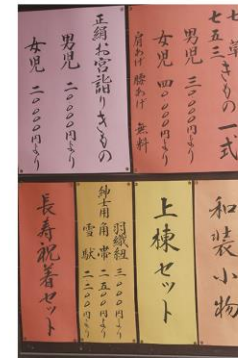 七五三きもの一式
男児 三〇〇〇円より
女児 四〇〇〇円より
肩あげ 腰あげ 無料
正絹お宮詣りきもの
男児 二〇〇〇〇円より
女児 二〇〇〇〇円より
和装小物
上棟セット
羽織紐 三〇〇〇円より
紳士用 角帯 二五〇〇円より
雪駄 二二〇〇円より
長寿祝着セット